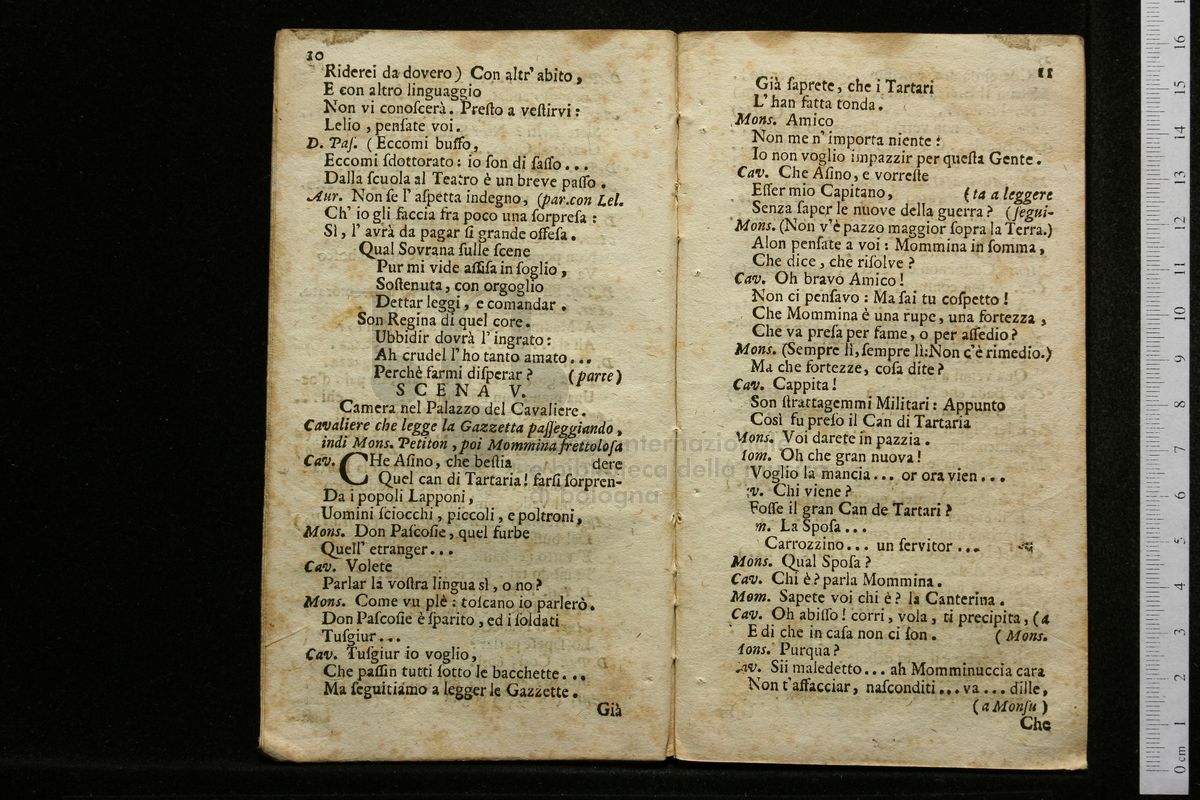 10
Riderei da dovero) Con altr' abito,
E con altro linguaggio
Non vi conoſcerà. Preſto a veſtirvi:
Lelio, penſate voi.
D. Paſ. (Eccomi buffo,
Eccomi ſdottorato: io ſon di ſaſſo...
Dalla ſcuola al Teatro è un breve paſſo.
Aur. Non ſe l' aſpetta indegno, (par. con Lel.
Ch' io gli faccia fra poco una ſorpreſa:
Sì, l' avrà da pagar ſi grande offeſa.
Qual Sovrana ſulle ſcene
Pur mi vide aſſiſa in ſoglio,
Soſtenuta, con orgoglio
Dettar leggi, e comandar.
Son Regina di quel core.
Ubbidir dovrà l' ingrato:
Ah crudel l' ho tanto amato...
Perchè farmi diſperar? (parte)
SCENA V.
Camera nel Palazzo del Cavaliere.
Cavaliere che legge la Gazzetta paſſeggiando,
indi Mons. Petiton, poi Mommina frettoloſa
Cav. CHe Aſino, che beſtia dere
Quel can di Tartaria! farſi ſorpren-
Da i popoli Lapponi,
Uomini ſciocchi, piccoli, e poltroni,
Mons. Don Paſcoſie, quel furbe
Quell' etranger...
Cav. Volete
Parlar la voſtra lingua sì, o no?
Mons. Come vu plè: toſcano io parlerò.
Don Paſcoſie è ſparito, ed i ſoldati
Tuſgiur...
Cav. Tuſgiur io voglio,
Che paſſin tutti ſotto le bacchette...
Ma ſeguitiamo a legger le Gazzette.
Già
11
Già ſaprete, che i Tartari
L' han fatta tonda.
Mons. Amico
Non me n' importa niente:
Io non voglio impazzir per queſta Gente.
Cav. Che Aſino, e vorreſte
Eſſer mio Capitano, (ta a leggere
Senza ſaper le nuove della guerra? (ſegui-
Mons. (Non v'è pazzo maggior ſopra la Terra.)
Alon penſate a voi: Mommina in ſomma,
Che dice, che riſolve?
Cav. Oh bravo Amico!
Non ci penſavo: Ma ſai tu coſpetto!
Che Mommina è una rupe, una fortezza,
Che va preſa per fame, o per aſſedio?
Mons. (Sempre lì, ſempre lì: Non c'è rimedio.)
Ma che fortezze, coſa dite?
Cav. Cappita!
Son ſtrattagemmi Militari: Appunto
Così fu preſo il Can di Tartaria
Mons. Voi darete in pazzia.
Iom. Oh che gran nuova!
Voglio la mancia... or ora vien...
v. Chi viene?
Foſſe il gran Can de Tartari?
m. La Spoſa...
Carrozzino... un ſervitor...
Mons. Qual Spoſa?
Cav. Chi è? parla Mommina.
Mom. Sapete voi chi è? la Canterina.
Cav. Oh abiſſo! corri, vola, ti precipita, (a
E di che in caſa non ci ſon. (Mons.
Ions. Purqua?
av. Sii maledetto... ah Momminuccia cara
Non t'affacciar, naſconditi... va... dille,
(a Monſu)
Che